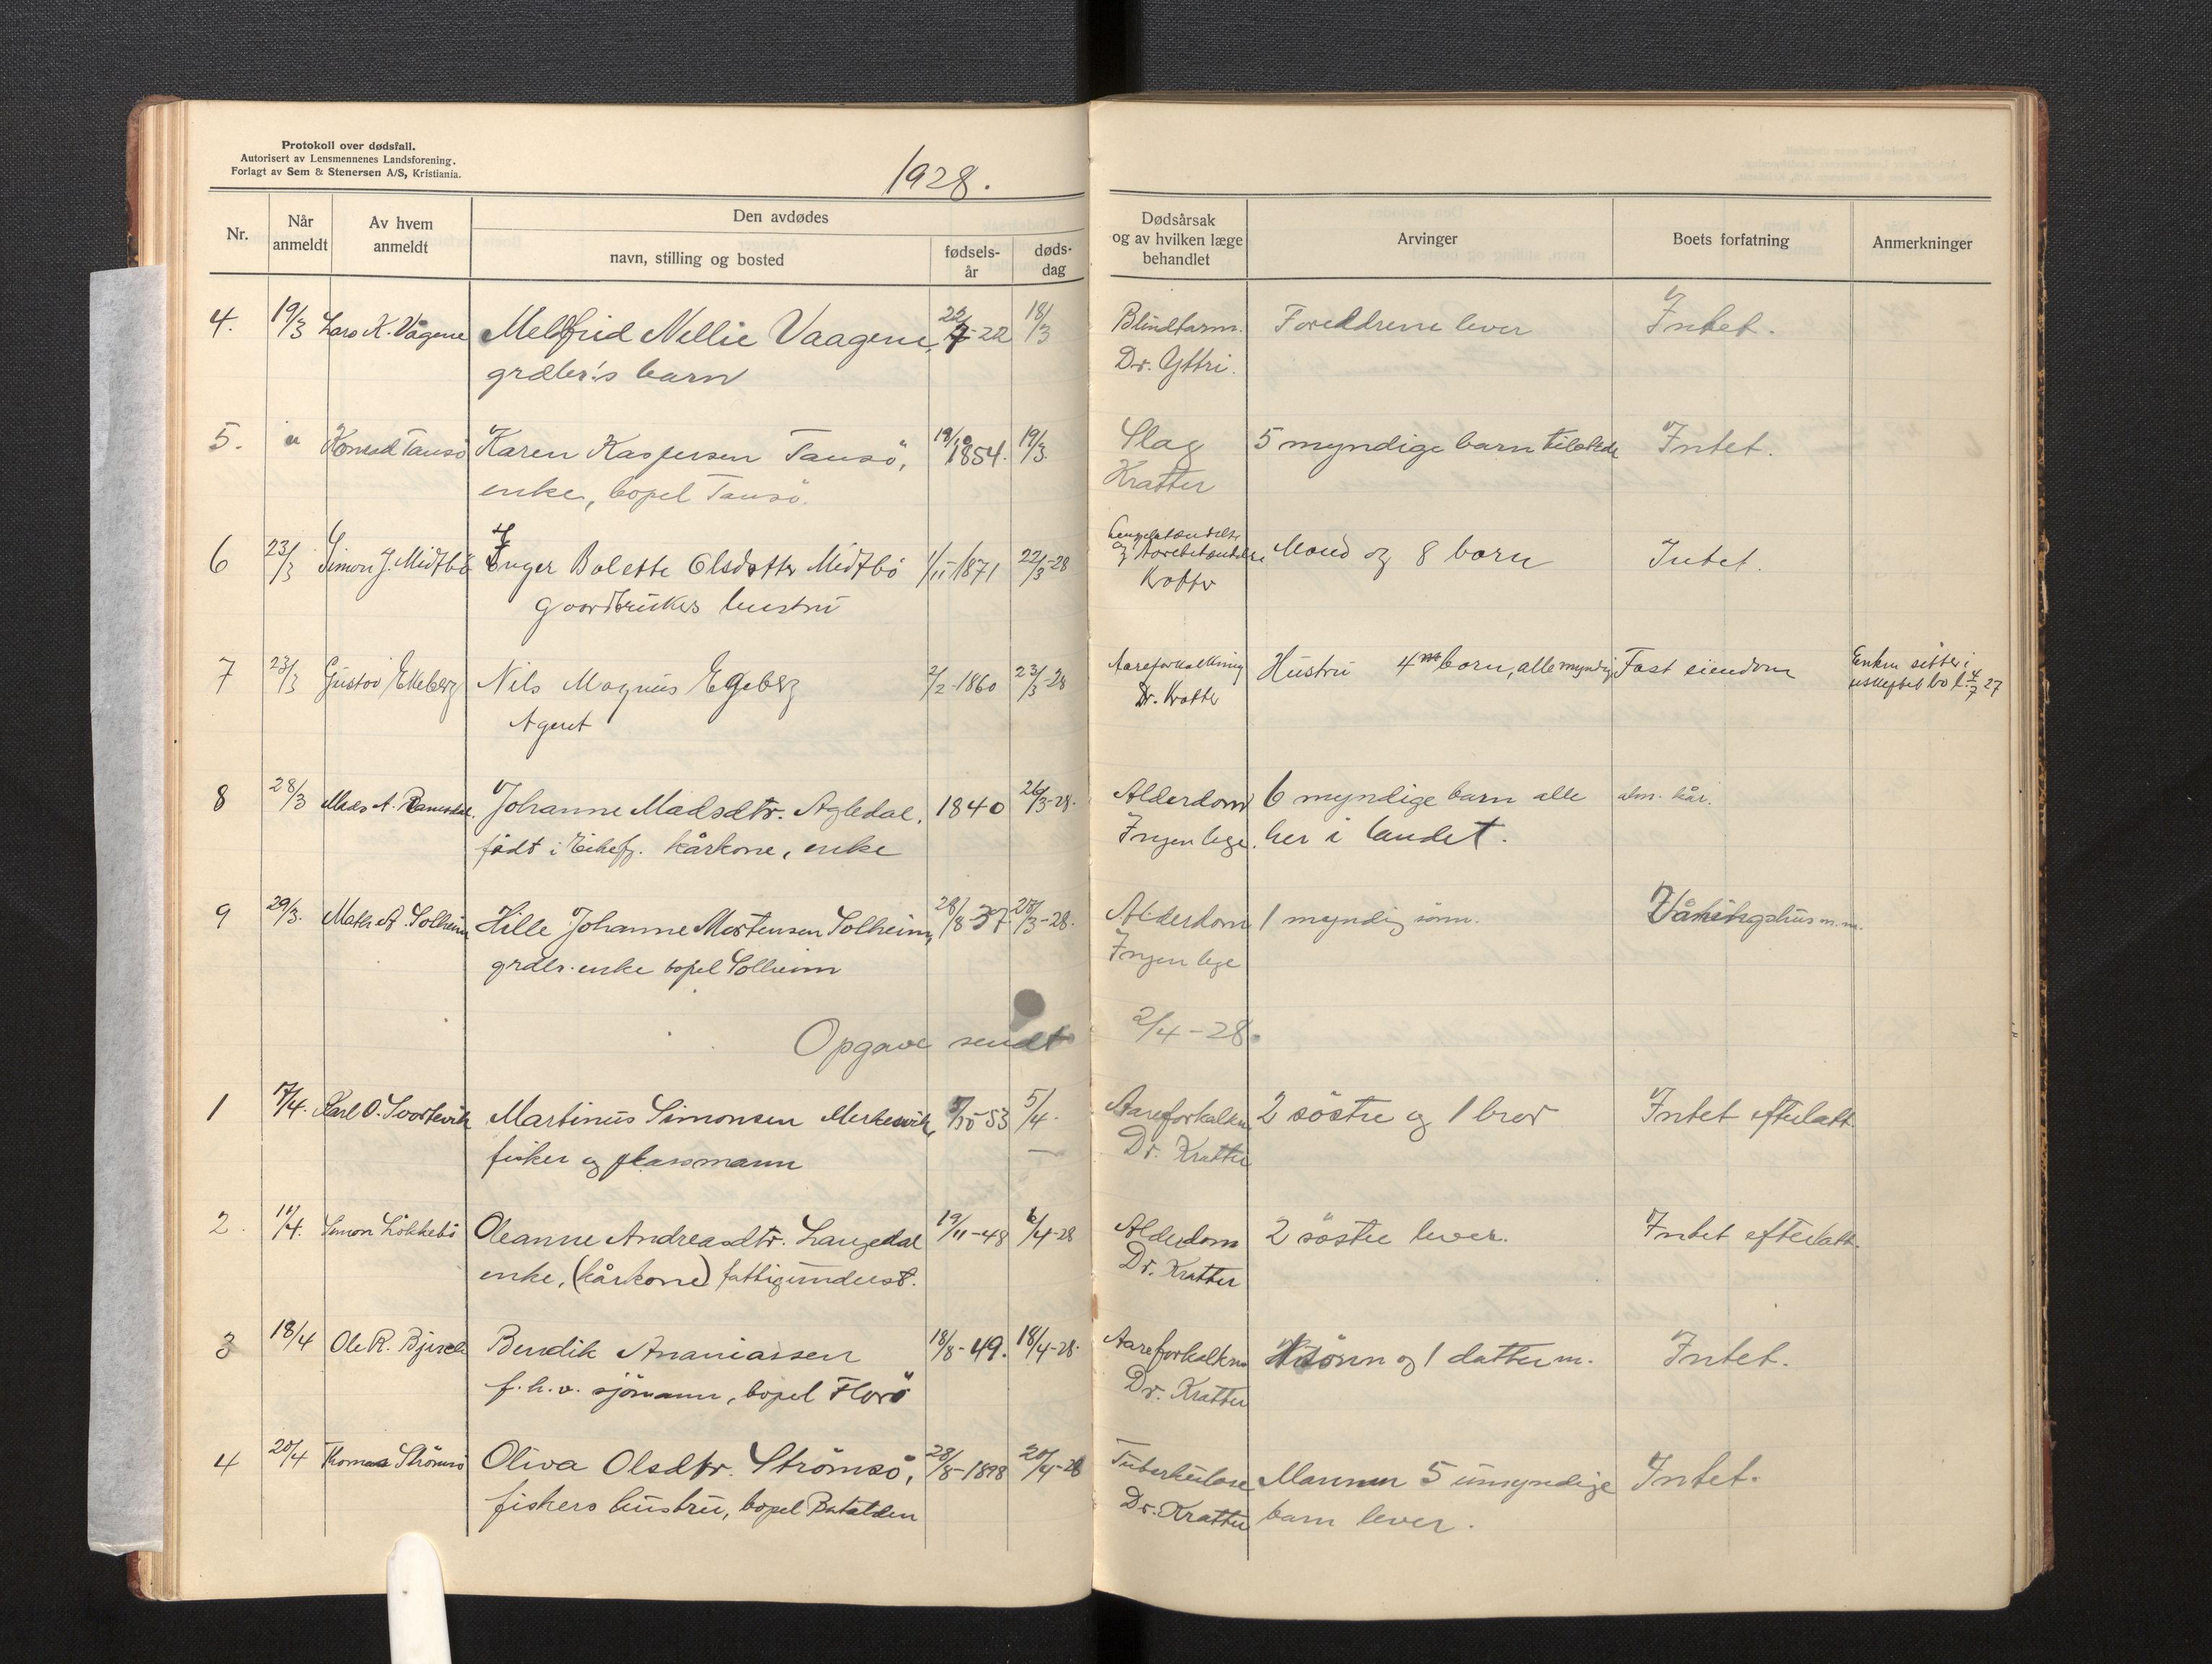 Protokoll over dødsfall.
Autorisert av Lensmennenes Landsforening.
Forlagt av Sem & Stenersen A/S, Kristiania.
1928.
Nr.
Når anmeldt
Av hvem anmeldt
Den avdødes
navn, stilling og bosted
fødsels-år
døds-dag
Dødsårsak og av hvilken læge behandlet
Arvinger
Boets forfatning
Anmerkninger
4. 19/3 Lars K. Vågene Melfrid Nellie Vaagene, 22/7-22 18/3 Blindtarm. Foreldrene lever Intet.
grdbr's barn Dr. Yttri.
5. " Konrad Tansö Karen Kaspersen Tansö, 19/10 1854. 19/3. Slag 5 myndige barn tilstede Intet.
enke, bopel Tansö. Kratter
6 23/3 Simon J. Midtbö Inger Bolette Olsdotter Midtbö 1/11-1871 22/3-28 Mand og 8 born Intet.
goardbrukers hustru Krotter
7 23/3 Gustav Ekeberg Nils Magnus Egeberg 2/2-1860 23/3-28 Aareforkalkning Hustru 4 born, alle myndig Fast eiendom Enken sitter i
Agent Dr. Krotter uskiftet bo l. 4/7 27
8 28/3 Mads A. Ramsdal. Johanne Madsdtr. Agledal, 1840 26/3-28. Alderdom 6 myndige barn alle alm. kår.
födt i Eikefj. kårkone, enke Ingen lege. her i landet.
9 29/3. Math A. Solheim Hille Johanne Mortensen Solheim, 28/8-37. 28/3-28. Alderdom 1 myndig sönn. Våningshus m.m.
grdbr. enke bopel Solheim Ingen lege
Opgave sendt 2/4-28.
1 17/4. Karl O. Svortevik Martinus Simonsen Merkesvik, 53 5/4. Aareforkalkn 2 söstre og 1 bror Intet efterlatt.
fisker og plassmann Dr. Kratter
2. 11/4. Simon Lökkebö Oleanne Andreasdtr. Langedal 19/11-48 6/4-28 Alderdom 2 söstre lever. Intet efterlatt.
enke, (kårkone) fattigunderst. Dr. Kratter
3 18/4 Ole R. Bendik Ananiassen 18/8-49. 18/4-28. Aareforkalkn sönn og 1 datter m. Intet.
f.h.v. sjömann, bopel Florö Dr. Kratter
4 20/4 Thomas Strömsö Oliva Olsdtr. Strömsö, 28/8-1898 20/4-28 Tuberkulose Mannen 5 umyndige Intet.
fiskers hustru, bopel Batalden Dr. Kratter barn lever.